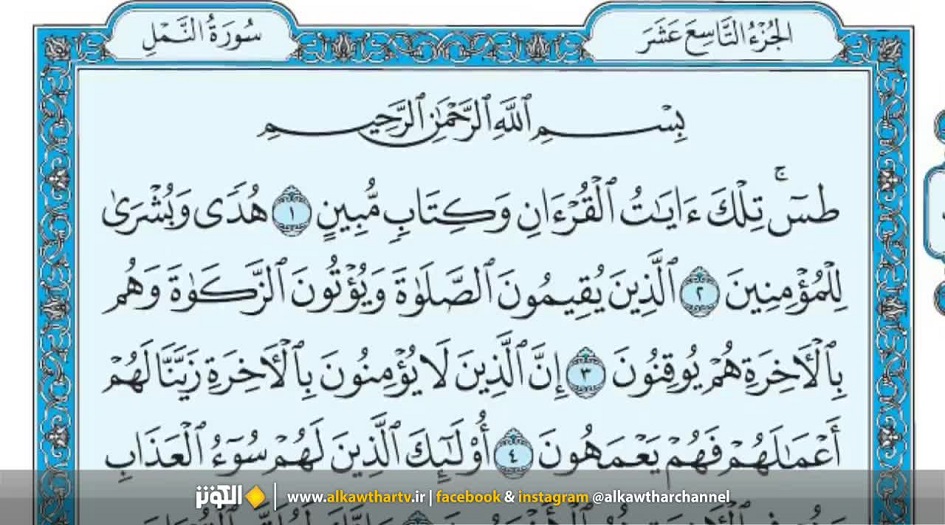 الجُزْءُ التَّاسِعَ عَشَرَ
سُورَةُ النَّمْلِ
بِسْمِ ٱللَّهِ ٱلرَّحْمَٰنِ ٱلرَّحِيمِ
طسٓۚ تِلْكَ ءَايَاتُ ٱلْقُرْءَانِ وَكِتَابٍ مُّبِينٍ ١ هُدًى وَبُشْرَىٰ
لِلْمُؤْمِنِينَ ٢ ٱلَّذِينَ يُقِيمُونَ ٱلصَّلَوٰةَ وَيُؤْتُونَ ٱلزَّكَوٰةَ وَهُم
بِٱلْأَخِرَةِ هُمْ يُوقِنُونَ ٣ إِنَّ ٱلَّذِينَ لَا يُؤْمِنُونَ بِٱلْأَخِرَةِ زَيَّنَّا لَهُمْ
أَعْمَٰلَهُمْ فَهُمْ يَعْمَهُونَ ٤ أُوْلَٰٓئِكَ ٱلَّذِينَ لَهُمْ سُوٓءُ ٱلْعَذَابِ
الكوثر www.alkawthartv.ir | facebook & instagram @alkawtharchannel